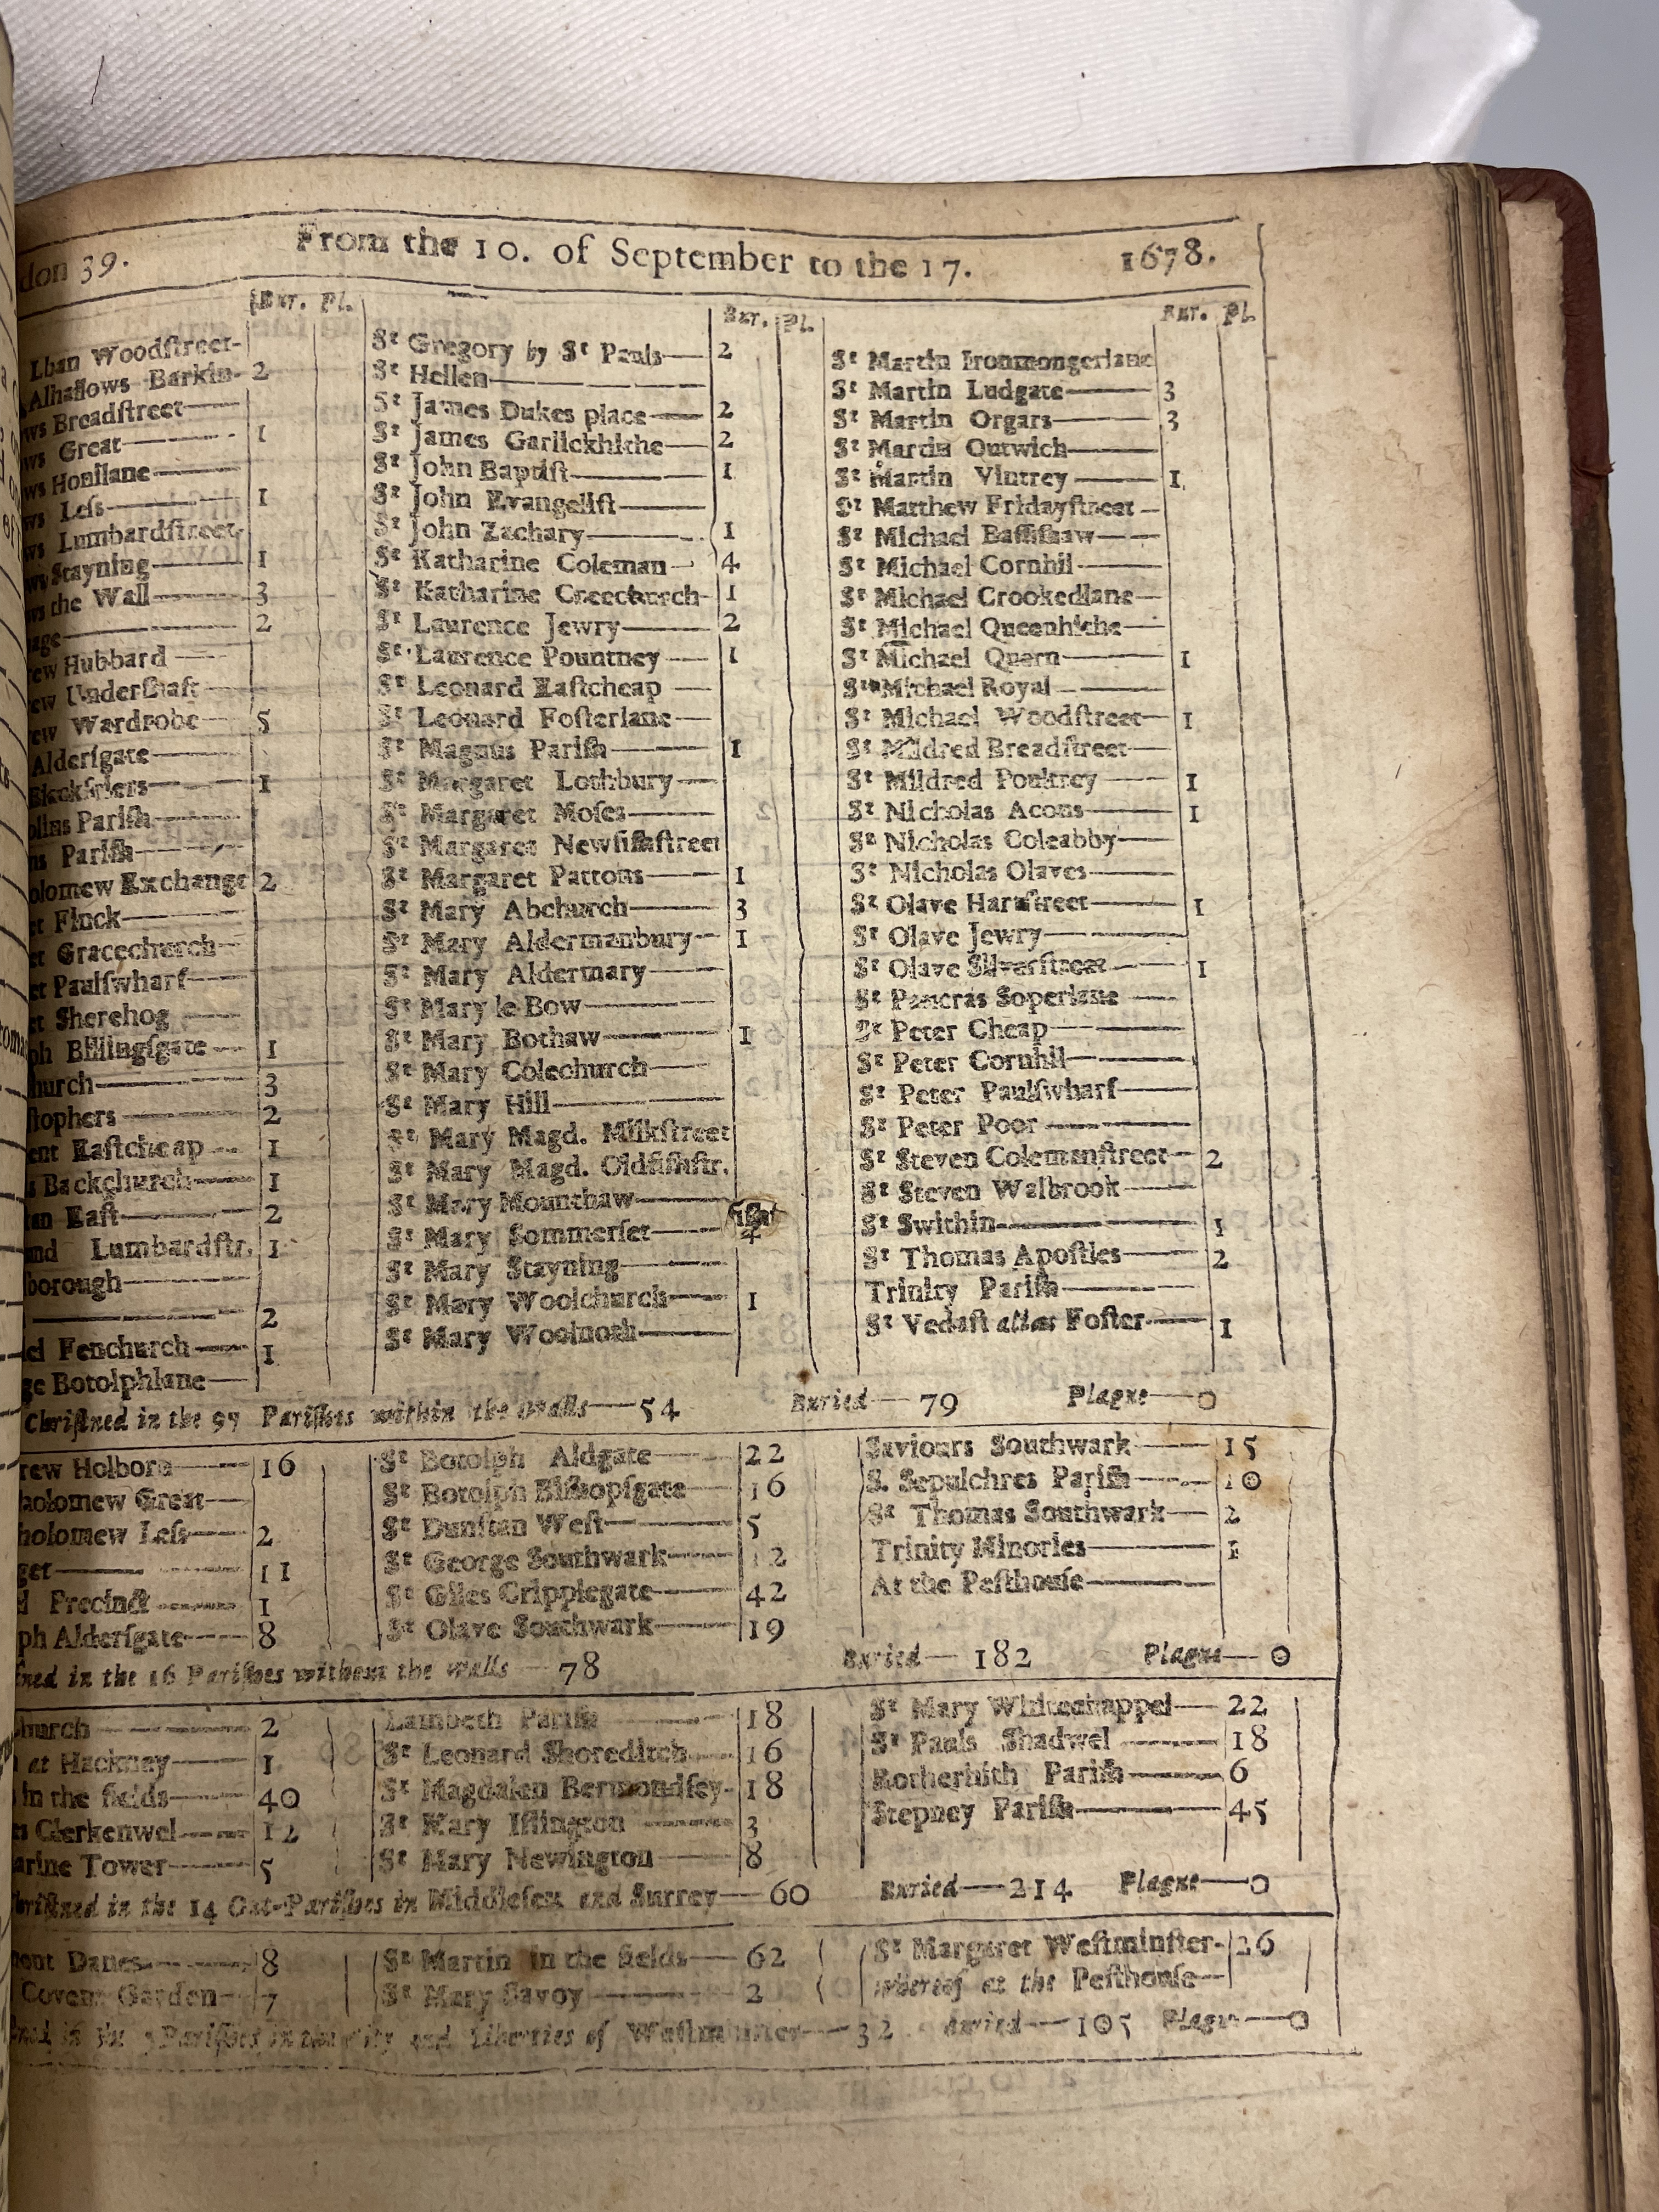 don 39. From the 10. of September to the 17. 1678.
Bur. Pl.
Lban Woodſtreet
Alhallows Barkin 2
ws Breadſtreet
ws Great 1
ws Honilane
ws Leſs 1
ws Lumbardſtreet
ws Stayning 1
ws the Wall 3
age 2
ew Hubbard
ew Underſhaft
ew Wardrobe 5
Alderſgate
Blackfriers 1
olins Pariſh
ns Pariſh
olomew Exchange 2
et Finck
et Gracechurch
et Paulſwharf
et Sherehog
ph Billingſgate 1
hurch 3
ſtophers 2
ent Eaſtcheap 1
s Backchurch 1
tan Eaſt 2
und Lumbardſtr. 1
borough
2
el Fenchurch 1
ge Botolphlane
Bur. Pl.
St Gregory by St Pauls 2
St Hellen
St James Dukes place 2
St James Garlickhithe 2
St John Baptiſt 1
St John Evangeliſt
St John Zachary 1
St Katharine Coleman 4
St Katharine Creechurch 1
St Laurence Jewry 2
St Laurence Pountney 1
St Leonard Eaſtcheap
St Leonard Foſterlane
St Magnus Pariſh 1
St Margaret Lothbury
St Margaret Moſes
St Margaret Newfiſhſtreet
St Margaret Pattons 1
St Mary Abchurch 3
St Mary Aldermanbury 1
St Mary Aldermary
St Mary le Bow
St Mary Bothaw 1
St Mary Colechurch
St Mary Hill
St Mary Magd. Milkſtreet
St Mary Magd. Oldfiſhſtr.
St Mary Mounthaw
St Mary Sommerſet 4
St Mary Stayning
St Mary Woolchurch 1
St Mary Woolnoth
Bur. Pl.
St Martin Ironmongerlane
St Martin Ludgate 3
St Martin Orgars 3
St Martin Outwich
St Martin Vintrey 1
St Matthew Fridayſtreet
St Michael Baſſiſhaw
St Michael Cornhil
St Michael Crookedlane
St Michael Queenhithe
St Michael Quern 1
St Michael Royal
St Michael Woodſtreet 1
St Mildred Breadſtreet
St Mildred Poultrey 1
St Nicholas Acons 1
St Nicholas Coleabby
St Nicholas Olaves
St Olave Hartſtreet 1
St Olave Jewry
St Olave Silverſtreet 1
St Pancras Soperlane
St Peter Cheap
St Peter Cornhil
St Peter Paulſwharf
St Peter Poor
St Steven Colemanſtreet 2
St Steven Walbrook
St Swithin 1
St Thomas Apoſtles 2
Trinity Pariſh
St Vedaſt alias Foſter 1
Chriſtned in the 97 Pariſhes within the Walls—54 Buried—79 Plague—0
rew Holborn 16
holomew Great
holomew Leſs 2
get 11
l Precinct 1
ph Alderſgate 8
St Botolph Aldgate 22
St Botolph Biſhopſgate 16
St Dunſtan Weſt 5
St George Southwark 12
St Giles Cripplegate 42
St Olave Southwark 19
Saviours Southwark 15
S. Sepulchres Pariſh 10
St Thomas Southwark 2
Trinity Minories 1
At the Peſthouſe
ſtned in the 16 Pariſhes without the Walls—78 Buried—182 Plague—0
hurch 2
at Hackney 1
in the fields 40
s Clerkenwel 12
arine Tower 5
Lambeth Pariſh 18
St Leonard Shoreditch 16
St Magdalen Bermondſey 18
St Mary Iſlington 3
St Mary Newington 8
St Mary Whitechappel 22
St Pauls Shadwel 18
Rotherhith Pariſh 6
Stepney Pariſh 45
hriſtned in the 14 Out-Pariſhes in Middleſex and Surrey—60 Buried—214 Plague—0
ment Danes 8
Covent Garden 7
St Martin in the fields 62
St Mary Savoy 2
St Margaret Weſtminſter 26
whereof at the Peſthouſe
ned in the 5 Pariſhes in the City and Liberties of Weſtminſter—32 Buried—105 Plague—0